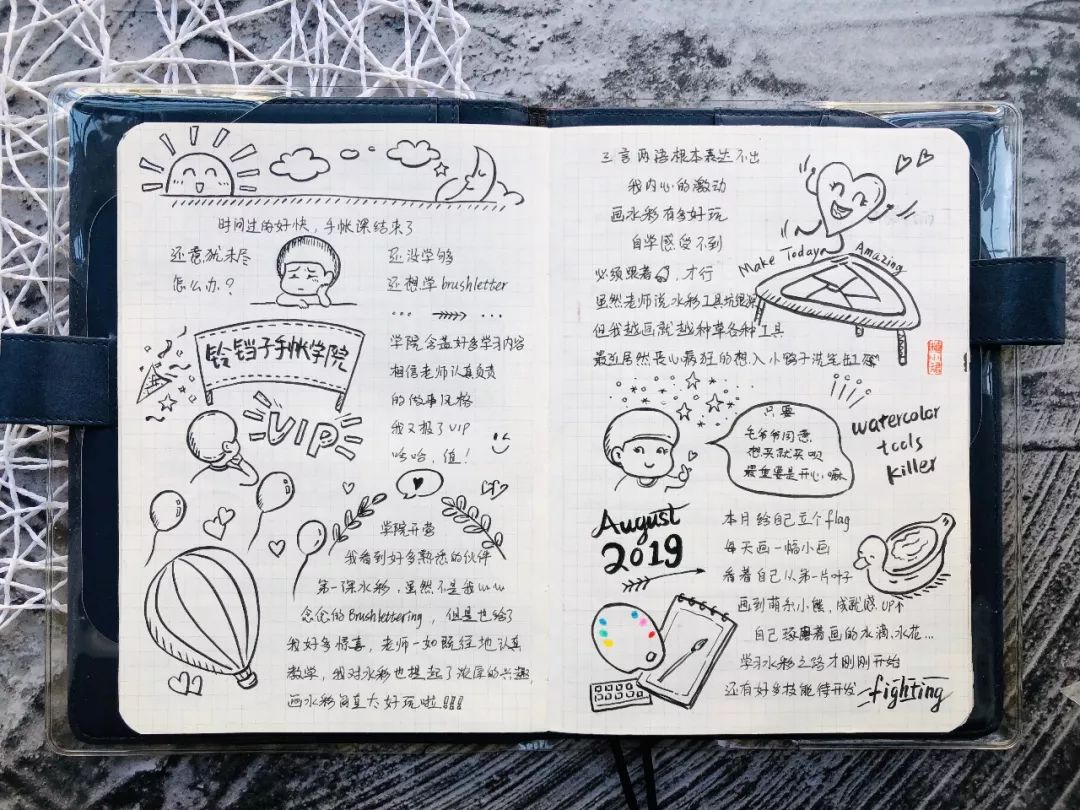 时间过的好快，手帐课结束了
还意犹未尽
怎么办？
还没学够
还想学brushletter
... ...
铃铛子手帐学院
VIP
学院含盖好多学习内容
相信老师认真负责
的做事风格
我又报了VIP
哈哈，值！
学院开营
我看到好多熟悉的伙伴
第一课水彩，虽然不是我
念念的Brushlettering，但是也给了
我好多惊喜，老师一如既往地认真
教学，我对水彩也提起了浓厚的兴趣，
画水彩简直太好玩啦!!!
三言两语根本表达不出
我内心的激动
画水彩有多好玩
自学感受不到
必须跟着，才行
虽然老师说水彩工具坑很深
但我越画就越种草各种工具
最近居然丧心病狂的想入小鸭子洗笔缸
Make Today Amazing
只要
毛爷爷同意
想买就买呗
最重要是开心嘛
watercolor
tools
killer
August
2019
本月给自己立个flag
每天画一幅小画
看着自己从第一片叶子
画到萌系小熊，成就感UP↑
自己琢磨着画的水滴、水花...
学习水彩之路才刚刚开始
还有好多技能待开发
fighting